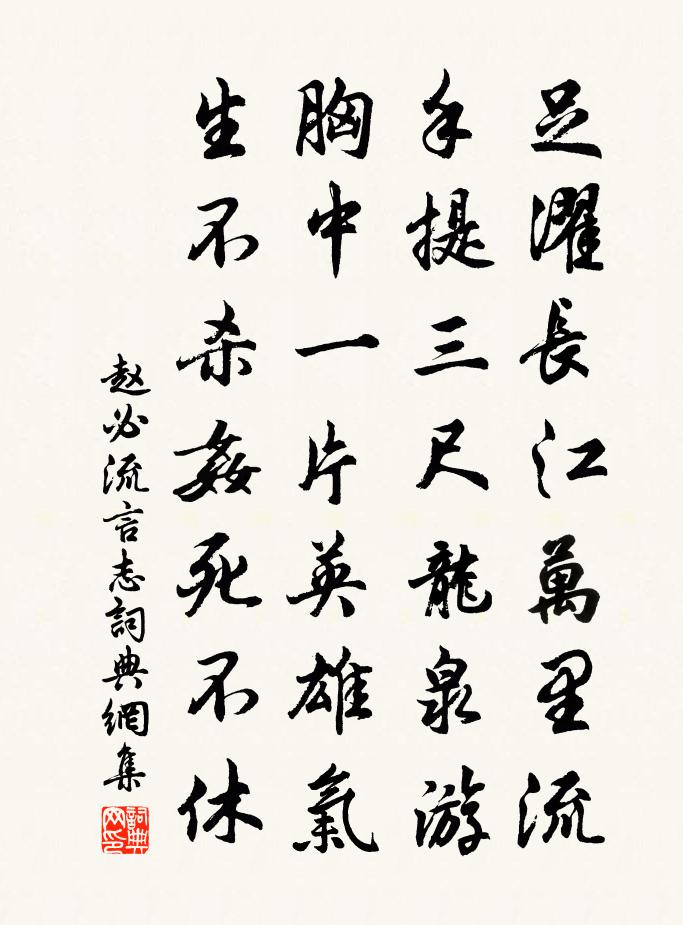 足濯長江萬里流
手提三尺龍泉游
胸中一片英雄氣
生不杀姦死不休
赵必流言志詞典網集
詞典网印